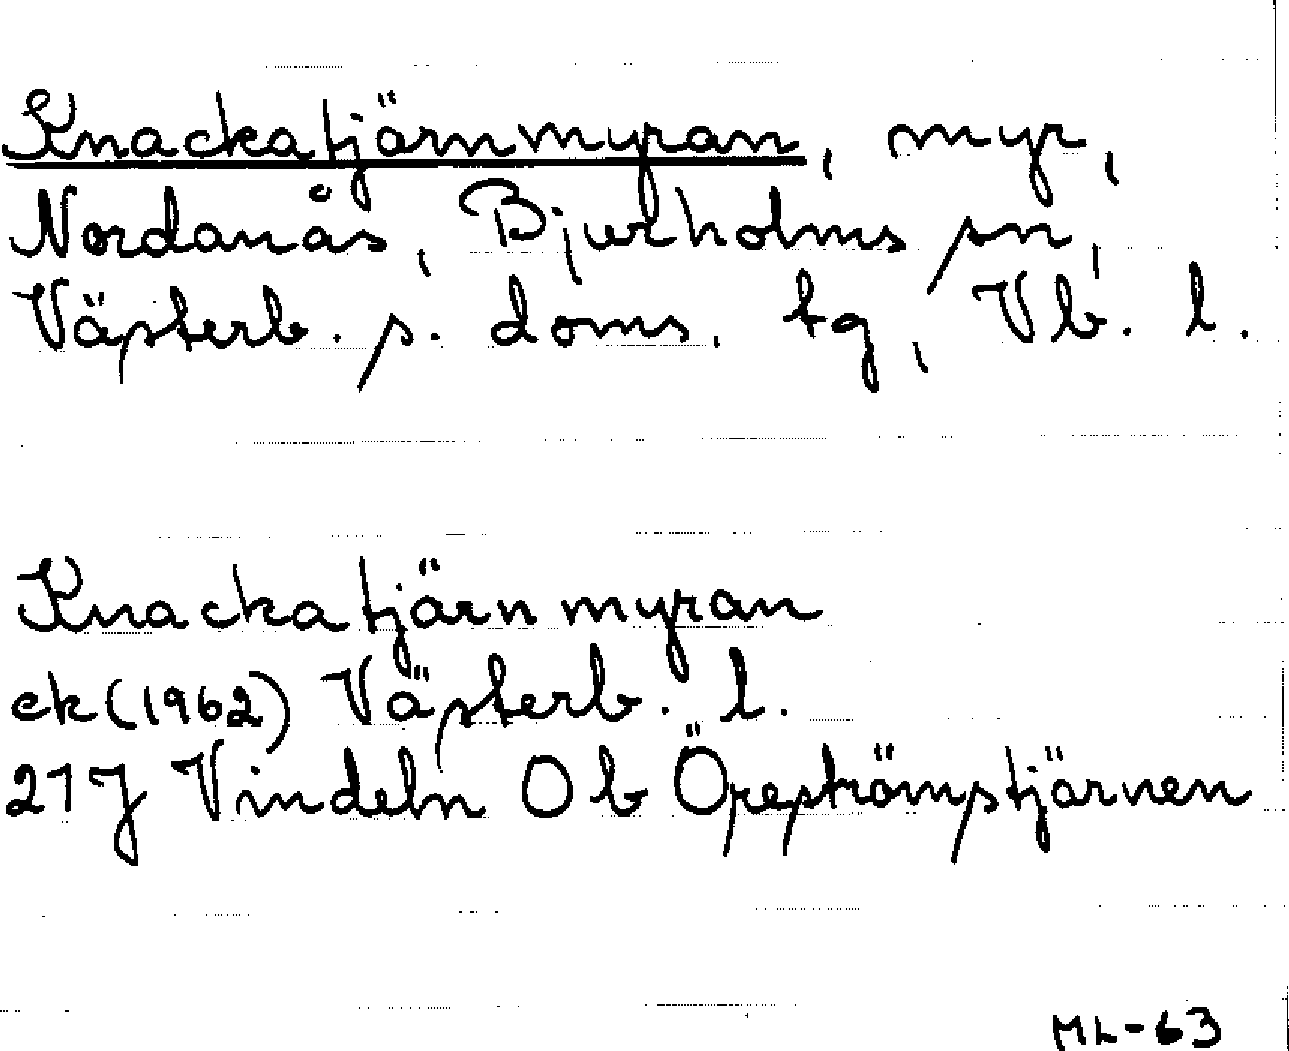 Knackatjärnmyran, myr,
Nordanås, Bjurholms sn,
Västerb. s. doms. tg, Vb. l.
Knackatjärnmyran
ek (1962) Västerb. l.
21J Vindeln Ob Öreströmstjärnen
ML-63